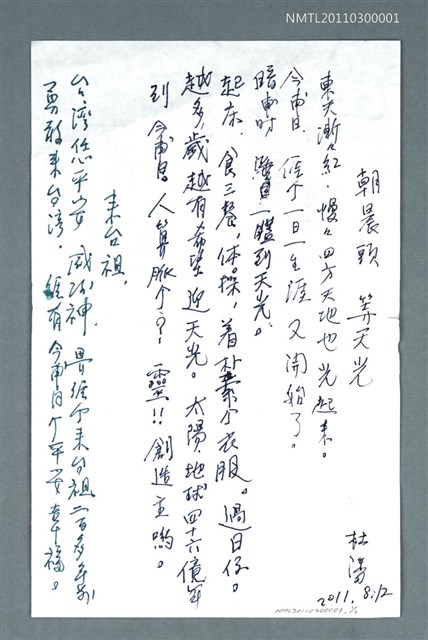 NMTL20110300001
朝晨頭 等天光
東天漸々紅．慢々四方天地也光起来。
今甫日 𠊎个一日一生涯又開始了。
暗甫時 一醒到天光。
起床．食三餐，体操，着朴素个衣服。過日仔。
越多歲越有希望迎天光。太陽．地球四十六億年
到今甫日。人算脈个？靈!!創造主喲。
来台祖．
台湾恁平安 感謝神．𠊎个来台祖二百多年前
勇敢来台湾．經有今甫日个平安幸福。
林
2011. 8.12
NMTL20110300001_1/1